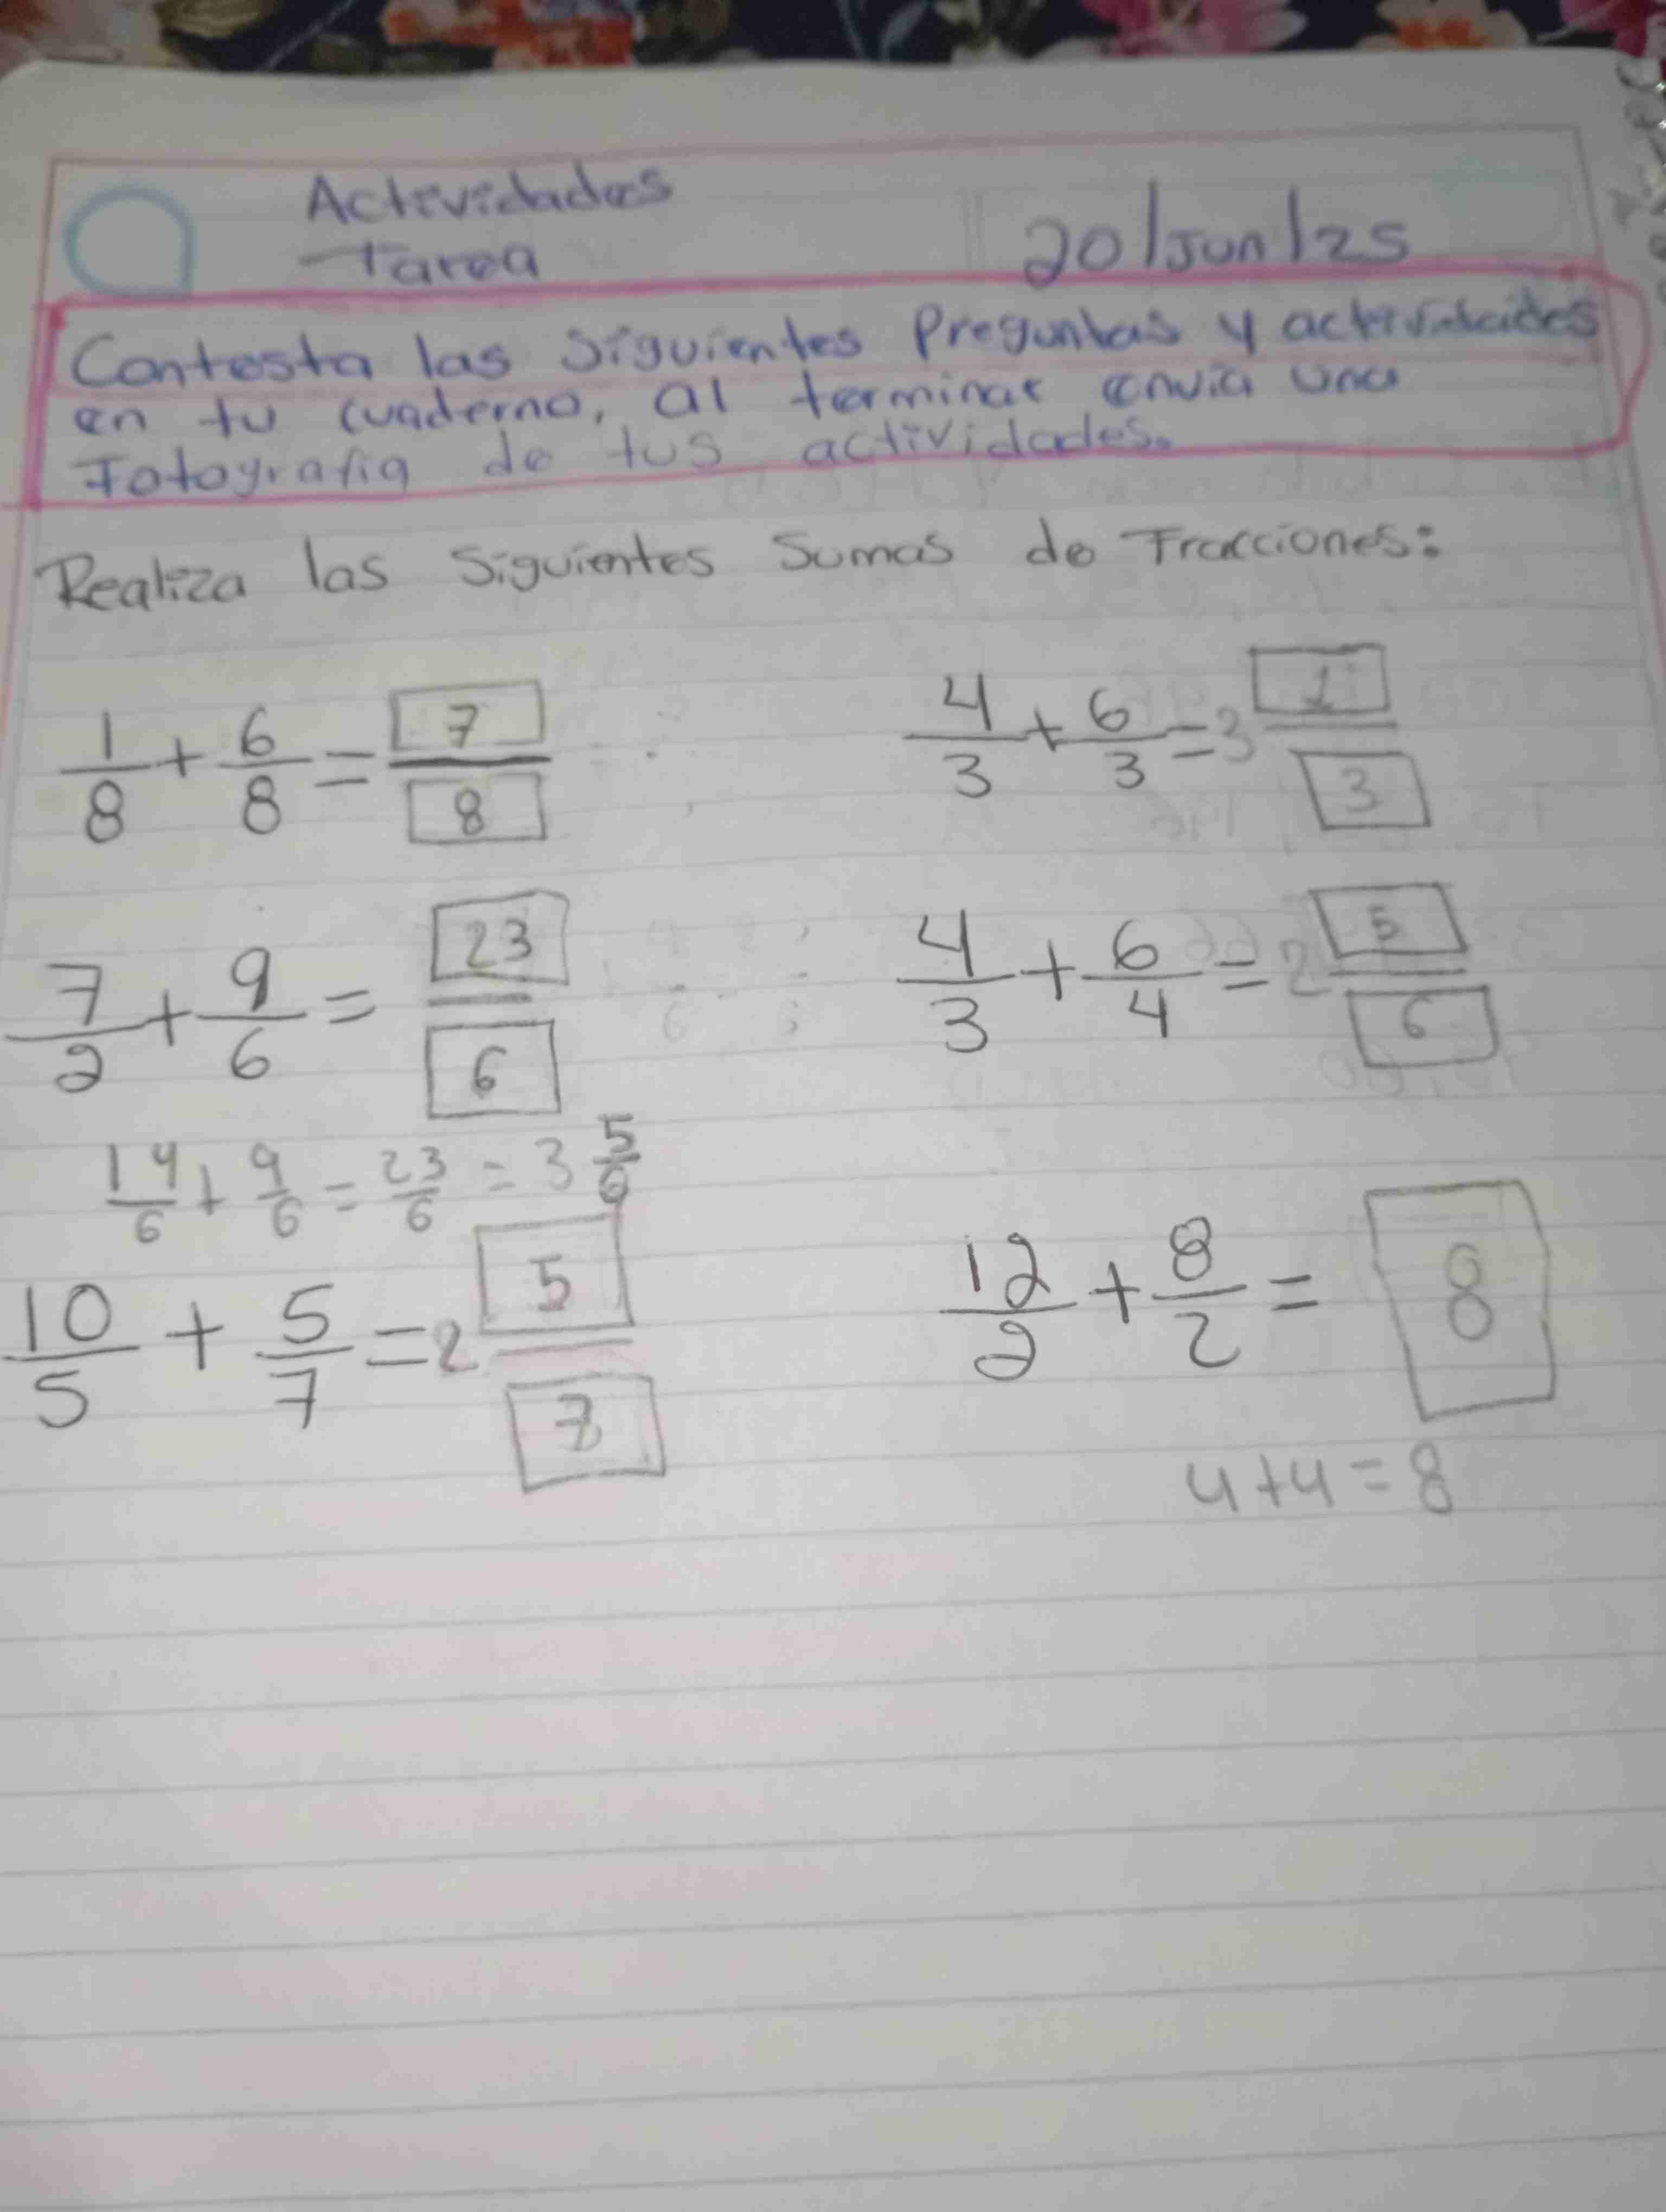 Actividades
Tarea 20/Jun/25
Contesta las siguientes Preguntas y actividades
en tu cuaderno, al terminar envia una
Fotografia de tus actividades.
Realiza las siguientes sumas de Fracciones:
1/8 + 6/8 = 7/8 4/3 + 6/3 = 3 1/3
7/2 + 9/6 = 23/6 4/3 + 6/4 = 2 5/6
14/6 + 9/6 = 23/6 = 3 5/6
10/5 + 5/7 = 2 5/7 12/2 + 8/2 = 8
4+4=8